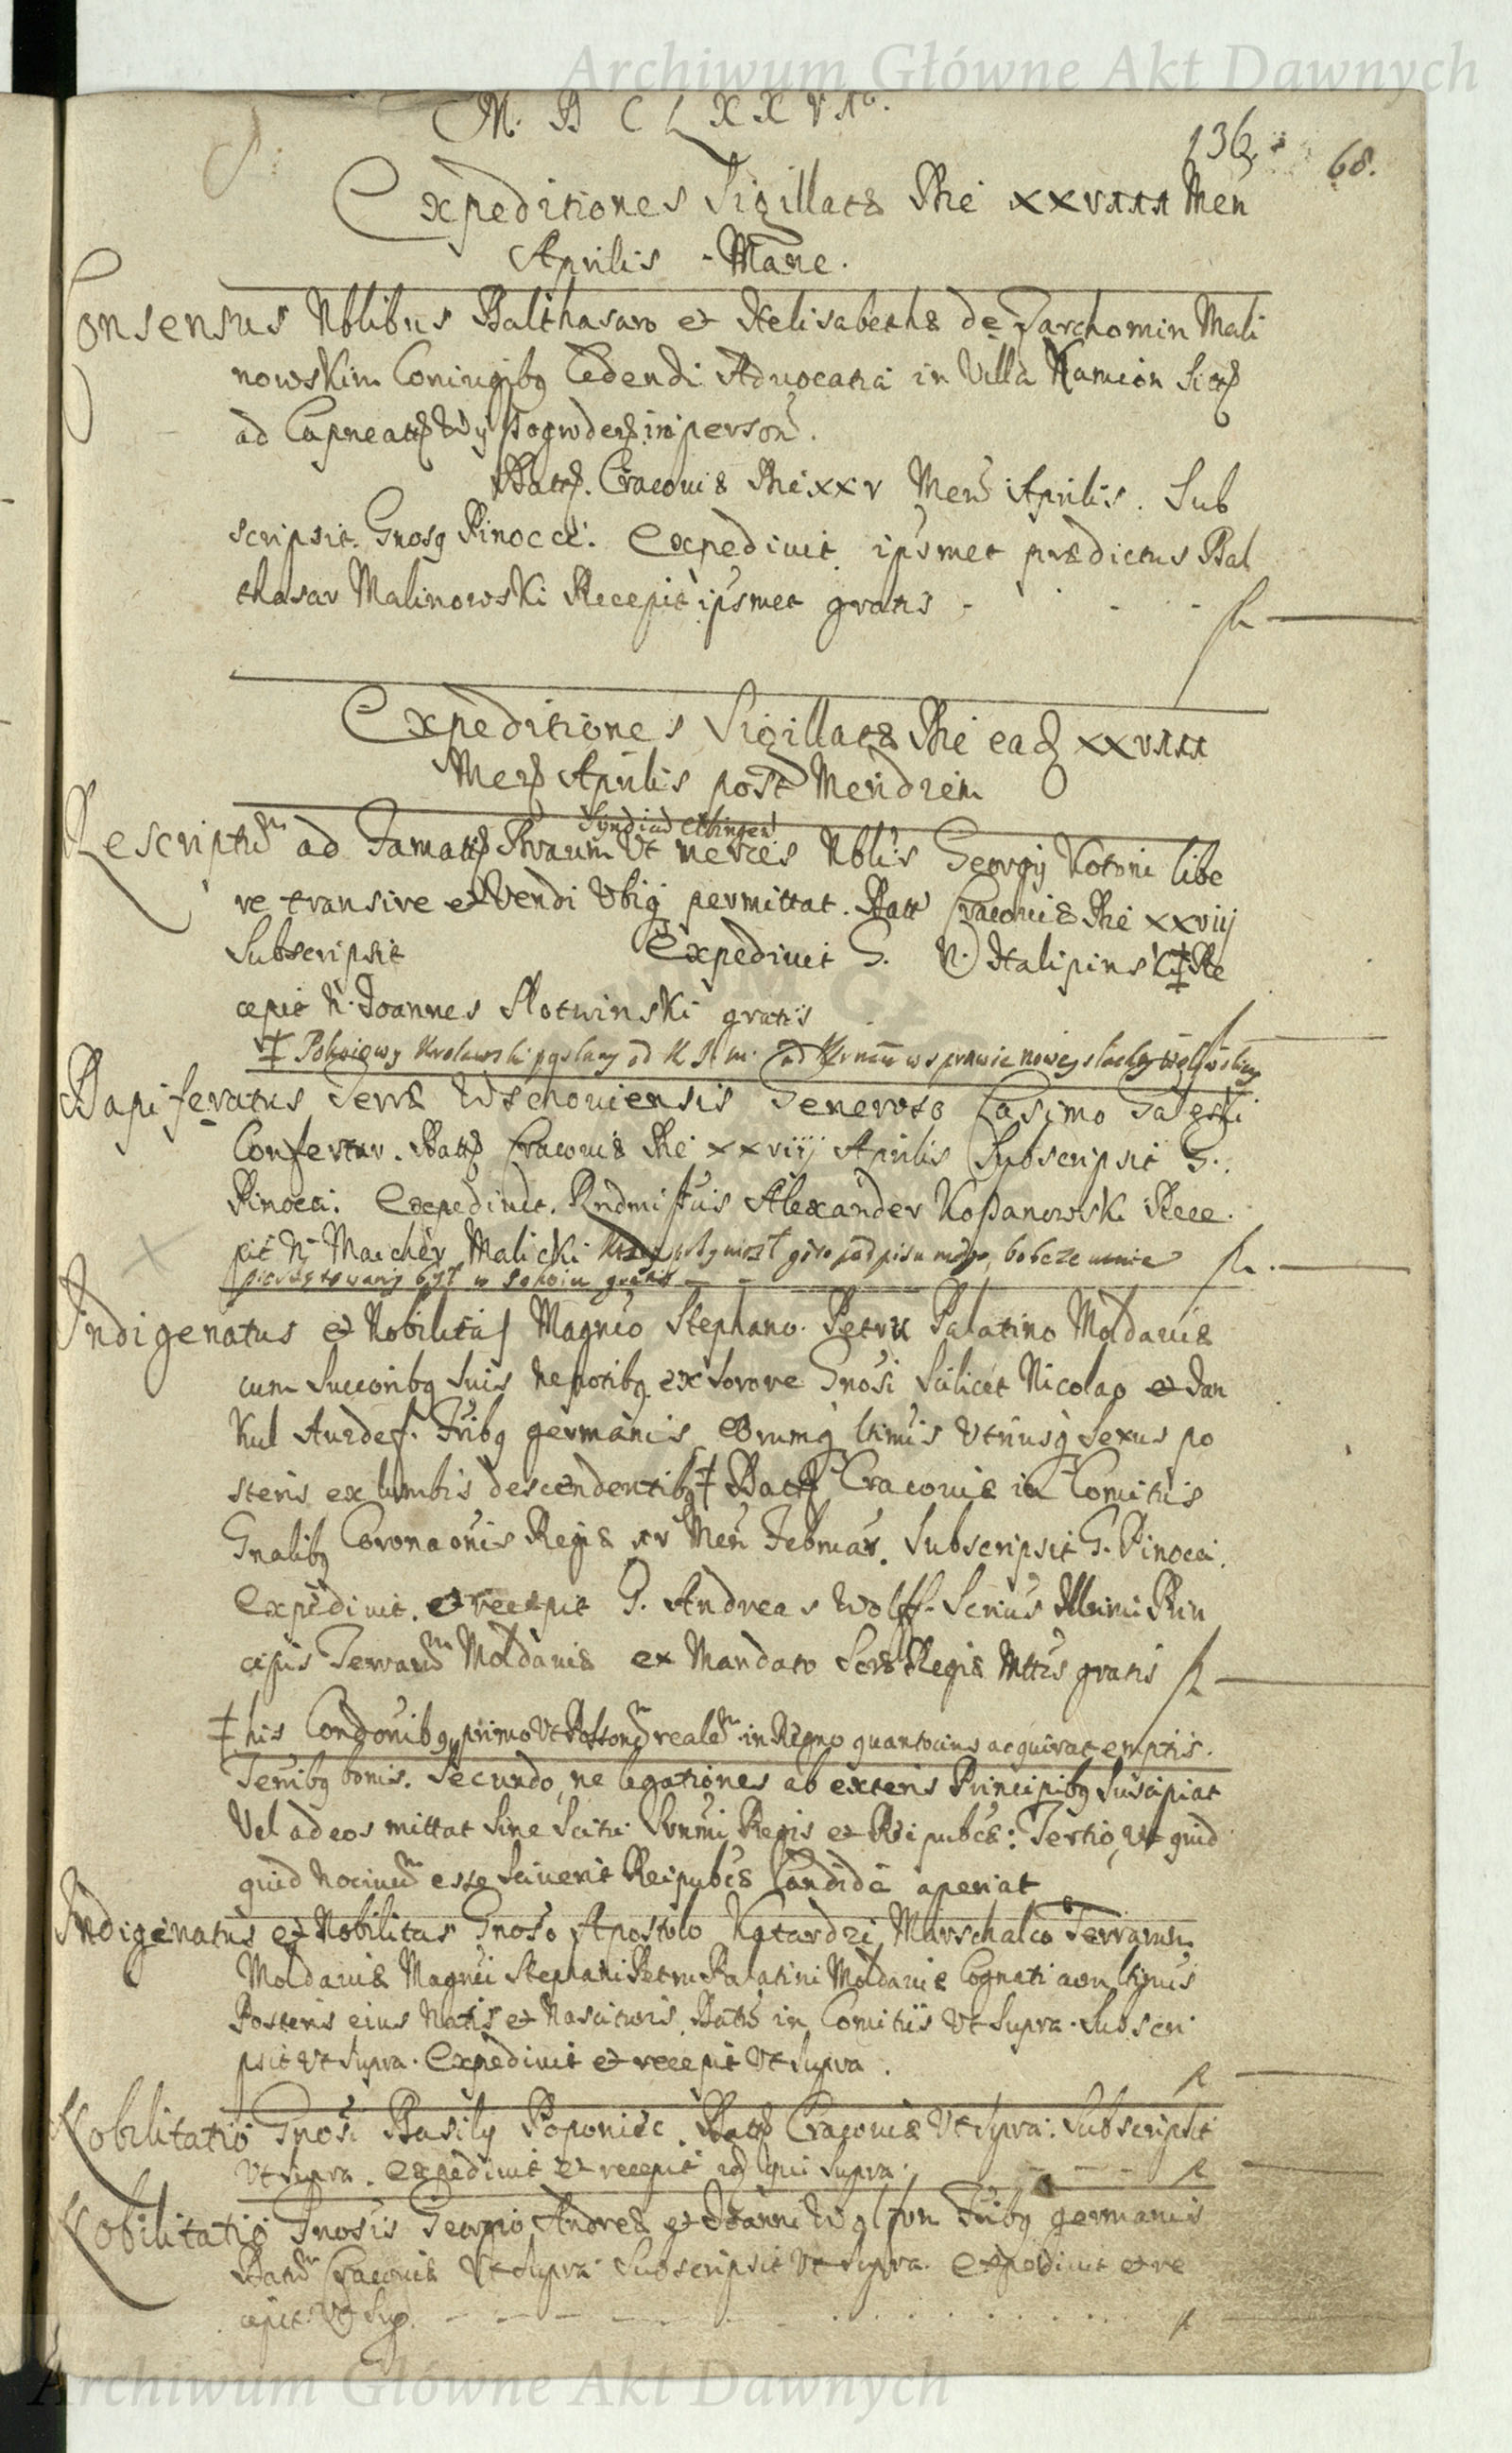 Archiwum Główne Akt Dawnych
M. D C L X X V I to.
136. 68.
Expeditiones Sigillatæ Die XXVIII Men
Aprilis Mane.
Consensus Nblibus Balthasaro et Helisabethæ de Jarchomin Mali
nowskim Coniugibq Cedendi Advocatiā in Villa Kamion Sit
ad Capneatt in person.
Datt. Cracoviæ Die XXV Mens Aprilis. Sub
scripsit. Gnosq Pinocci. Expedivit ipsmet prædictus Bal
thasar Malinowski Recepit ipsmet gratis
Expeditiones Sigillatæ Die ead XXVIII
Mens Aprilis post Meridiem
Syndicū Elbingen
Rescriptum ad Famatt Braum Ut merces Nblis Georgij Kotoni libe
re transire et Vendi Ubiq permittat. Datt Cracoviæ Die xxviij
Subscripsit Expedivit G. N. Halipinski ‡ Re
cepit N. Joannes Slotwinski gratis
‡ Pokoiowy Krolewski poslany od K J m
Dapiferatus Terræ Wschoviensis Generoso Casimo Galeski
Confertur. Datt Cracoviæ Die xxviij Aprilis Subscripsit G.
Pinocci. Expedivit. Rndmi Alexander Kossanowski Rece
pit N. Macher Malicki
był w pokoiu gratis
Indigenatus et Nobilitas Magnco Stephano Petru Palatino Moldaviæ
cum Succoribq Suis Nepotibq ex Sorore Gnosi Scilicet Nicolao et Dan
Kul Aurdef. Fribq germanis Eorumq ltimis Utriusq Sexus po
steris ex lumbis descendentibq ‡ Datt Cracoviæ in Comitiis
Gnalibq Coronaonis Regiæ xv Men Februar. Subscripsit G. Pinocci.
Expedivit et recepit G. Andreas Wolff Scrius Illmi Prin
cipis Terrarum Moldaviæ ex Mandato Scræ Regiæ Mttis gratis
‡ his Condonibq primo Ut Possonem realem in Regno quantocius acquirat emptis.
Terribq bonis. Secundo, ne legationes ab exteris Principibq Suscipiat
Vel ad eos mittat Sine Scitu Srmi Regis et Reipubcæ: Tertio, Ut quid
quid Nocivum esse Sciverit Reipubcæ Candide aperiat
Indigenatus et Nobilitas Gnoso Apostolo Katardzi Marschalco Terrarum
Moldaviæ Magnci Stephani Petru Palatini Moldaviæ Cognati ltimis
Posteris eius Natis et Nascituris. Datt in Comitiis Ut Supra. Subscri
psit Ut Supra. Expedivit et recepit Ut Supra.
Nobilitatio Gnosi Basilij Poponiec. Datt Cracoviæ Ut Supra: Subscripsit
Ut Supra. Expedivit et recepit id qui Supra.
Nobilitatio Gnosis Georgio Andreæ et Joanni Fribq germanis
Datum Cracoviæ Ut Supra Subscripsit Ut Supra. Expedivit et re
cepit Ut Sup.
Archiwum Główne Akt Dawnych